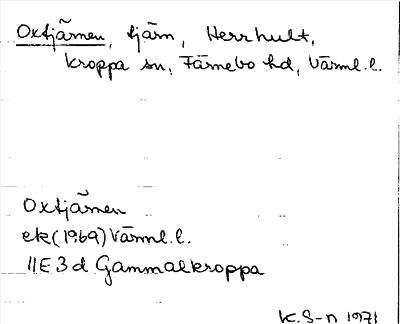 Oxtjärnen, tjärn, Herrhult,
Kroppa sn, Färnebo hd, Värml. l.
Oxtjärnen
ek (1969) Värml. l.
11E 3d Gammalkroppa
K. S-n 1971